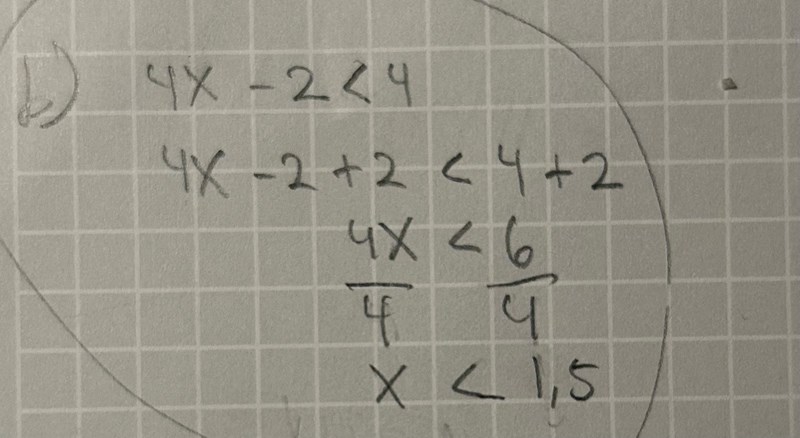 b) 4x - 2 < 4
4x - 2 + 2 < 4 + 2
4x < 6
4 4
x < 1,5